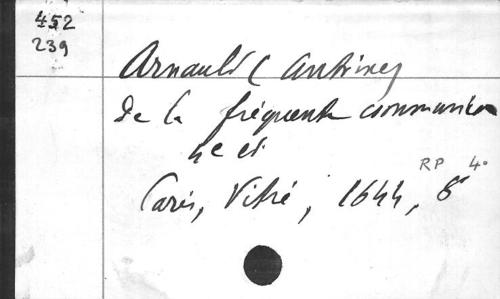 452
239
Arnauld (Antoine)
de la fréquente communion
4e éd
RP 4°
Paris, Vitré, 1644, 8°